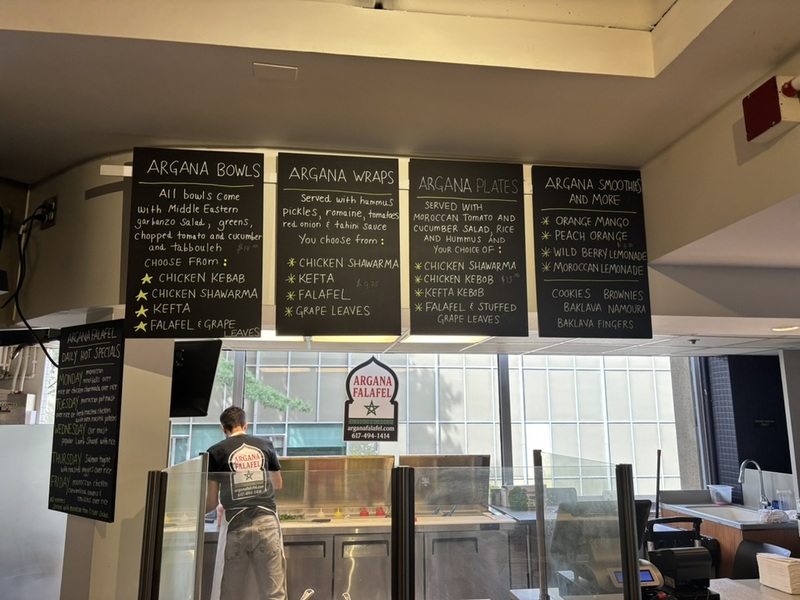 ARGANA BOWLS
All bowls come
with Middle Eastern
garbanzo Salad, greens,
chopped tomato and cucumber
and tabbouleh
CHOOSE FROM :
CHICKEN KEBAB
CHICKEN SHAWARMA
KEFTA
FALAFEL & GRAPE
LEAVES
ARGANA WRAPS
Served with hummus
pickles, romaine, tomatoes
red onion & tahini sauce
You choose from :
CHICKEN SHAWARMA
KEFTA
FALAFEL
GRAPE LEAVES
ARGANA PLATES
SERVED WITH
MOROCCAN TOMATO AND
CUCUMBER SALAD, RICE
AND HUMMUS AND
YOUR CHOICE OF :
CHICKEN SHAWARMA
CHICKEN KEBOB
KEFTA KEBOB
FALAFEL & STUFFED
GRAPE LEAVES
ARGANA SMOOTHIES
AND MORE
ORANGE MANGO
PEACH ORANGE
WILD BERRY LEMONADE
MOROCCAN LEMONADE
COOKIES BROWNIES
BAKLAVA NAMOURA
BAKLAVA FINGERS
ARGANA FALAFEL
DAILY HOT SPECIALS
MONDAY
TUESDAY
WEDNESDAY
THURSDAY
FRIDAY
ARGANA
FALAFEL
arganafalafel.com
617-494-1414
ARGANA
FALAFEL